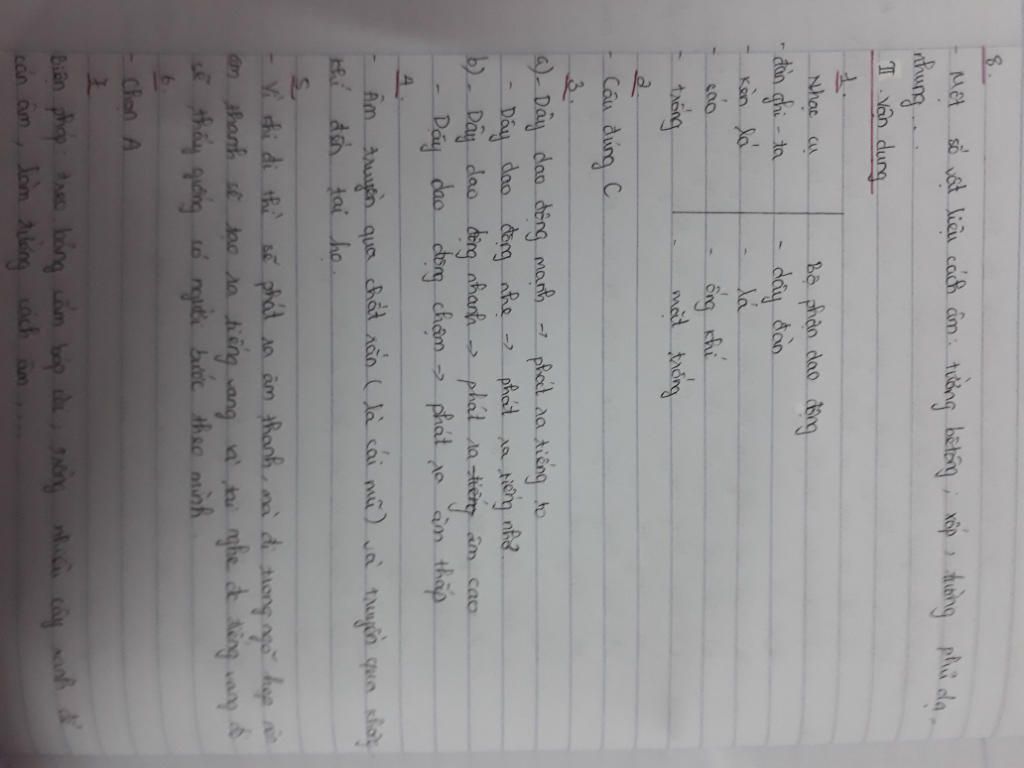 8.
- Một số vật liệu cách âm: tường bêtông, xốp, tường phủ dạ -
nhung...
II. Vận dụng
1.
Nhạc cụ Bộ phận dao động
- đàn ghi-ta - dây đàn
- kèn lá - lá
- sáo - ống khí
- trống - mặt trống
2
- Câu đúng C
3.
a) - Dây dao động mạnh → phát ra tiếng to
- Dây dao động nhẹ → phát ra tiếng nhỏ.
b) - Dây dao động nhanh → phát ra tiếng âm cao
- Dây dao động chậm → phát ra âm thấp
4.
- Âm truyền qua chất rắn (là cái mũ) và truyền qua không
khí đến tai họ.
5
- Vì khi đi thì sẽ phát ra âm thanh, mà đi trong ngõ hẹp nên
âm thanh sẽ tạo ra tiếng vang và tai nghe đc tiếng vang đó
sẽ thấy giống có người bước theo mình.
6.
- Chọn A
7
Biện pháp: treo bảng cấm bóp còi, trồng nhiều cây xanh để
cản âm, làm tường cách âm,...